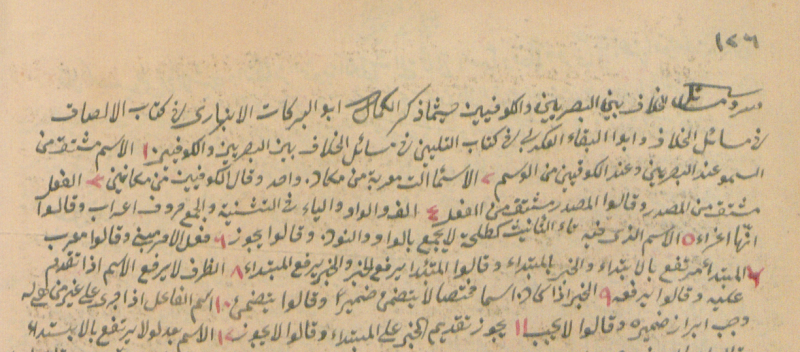 ١٢٦
سرد مسائل الخلاف بين البصريين والكوفيين حيثما ذكر الكمال ابو البركات الانباري في كتاب الانصاف
في مسائل الخلاف وابوا البقاء العكبري في كتاب التبيين في مسائل الخلاف بين البصريين والكوفيين ١ الاسم مشتق من
السمو عند البصريين وعند الكوفيين من الوسم ٢ الاسماء الستة معربة من مكان واحد وقال الكوفيين من مكانين ٣ الفعل
مشتق من المصدر وقالوا المصدر مشتق من الفعل ٤ الالف والواو والياء في التثنية والجمع حروف اعراب وقالوا
انها اعراء ٥ الاسم الذي فيه تاء التأنيث كطلحة لا يجمع بالواو والنون وقالوا يجوز ٦ فعل الامر مبني وقالوا معرب
٧ المبتداء مرتفع بالابتداء والخبر بالمبتداء وقالوا المبتداء يرفع الخبر والخبر يرفع المبتداء ٨ الظرف لا يرفع الاسم اذا تقدم
عليه وقالوا يرفعه ٩ الخبر اذا كان اسما محضا لا يتضمن ضميرا وقالوا يتضمن ١٠ اسم الفاعل اذا جرى على غير من هو له
وجب ابراز ضميره وقالوا لا يجب ١١ يجوز تقديم الخبر على المبتداء وقالوا لا يجوز ١٢ الاسم بعد لولا يرتفع بالابتداء